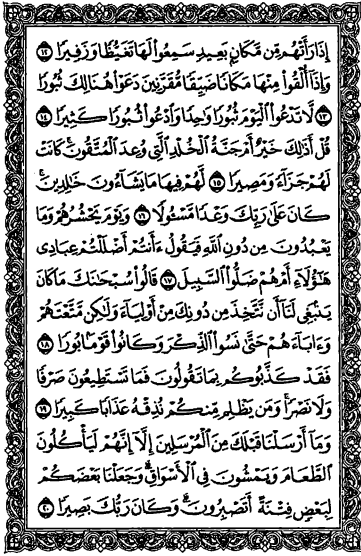 إِذَا رَأَتْهُم مِّن مَّكَانٍ بَعِيدٍ سَمِعُوا۟ لَهَا تَغَيُّظًا وَزَفِيرًا ﴿١٢﴾
وَإِذَآ أُلْقُوا۟ مِنْهَا مَكَانًا ضَيِّقًا مُّقَرَّنِينَ دَعَوْا۟ هُنَالِكَ ثُبُورًا
﴿١٣﴾ لَّا تَدْعُوا۟ ٱلْيَوْمَ ثُبُورًا وَٰحِدًا وَٱدْعُوا۟ ثُبُورًا كَثِيرًا ﴿١٤﴾
قُلْ أَذَٰلِكَ خَيْرٌ أَمْ جَنَّةُ ٱلْخُلْدِ ٱلَّتِى وُعِدَ ٱلْمُتَّقُونَ ۚ كَانَتْ
لَهُمْ جَزَآءً وَمَصِيرًا ﴿١٥﴾ لَّهُمْ فِيهَا مَا يَشَآءُونَ خَٰلِدِينَ ۚ
كَانَ عَلَىٰ رَبِّكَ وَعْدًا مَّسْـُٔولًا ﴿١٦﴾ وَيَوْمَ يَحْشُرُهُمْ وَمَا
يَعْبُدُونَ مِن دُونِ ٱللَّهِ فَيَقُولُ ءَأَنتُمْ أَضْلَلْتُمْ عِبَادِى
هَٰٓؤُلَآءِ أَمْ هُمْ ضَلُّوا۟ ٱلسَّبِيلَ ﴿١٧﴾ قَالُوا۟ سُبْحَٰنَكَ مَا كَانَ
يَنۢبَغِى لَنَآ أَن نَّتَّخِذَ مِن دُونِكَ مِنْ أَوْلِيَآءَ وَلَٰكِن مَّتَّعْتَهُمْ
وَءَابَآءَهُمْ حَتَّىٰ نَسُوا۟ ٱلذِّكْرَ وَكَانُوا۟ قَوْمًۢا بُورًا ﴿١٨﴾
فَقَدْ كَذَّبُوكُم بِمَا تَقُولُونَ فَمَا تَسْتَطِيعُونَ صَرْفًا
وَلَا نَصْرًا ۚ وَمَن يَظْلِم مِّنكُمْ نُذِقْهُ عَذَابًا كَبِيرًا ﴿١٩﴾
وَمَآ أَرْسَلْنَا قَبْلَكَ مِنَ ٱلْمُرْسَلِينَ إِلَّآ إِنَّهُمْ لَيَأْكُلُونَ
ٱلطَّعَامَ وَيَمْشُونَ فِى ٱلْأَسْوَاقِ ۗ وَجَعَلْنَا بَعْضَكُمْ
لِبَعْضٍ فِتْنَةً أَتَصْبِرُونَ ۗ وَكَانَ رَبُّكَ بَصِيرًا ﴿٢٠﴾